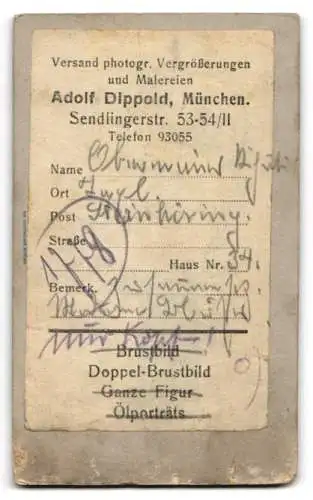 Versand photogr. Vergrößerungen
und Malereien
Adolf Dippold, München.
Sendlingerstr. 53-54/II
Telefon 93055
Name Obermeier
Ort
Post Steinhöring.
Straße
Haus Nr. 34.
Bemerk.
nur Kopf!
Brustbild
Doppel-Brustbild
Ganze Figur
Ölporträts